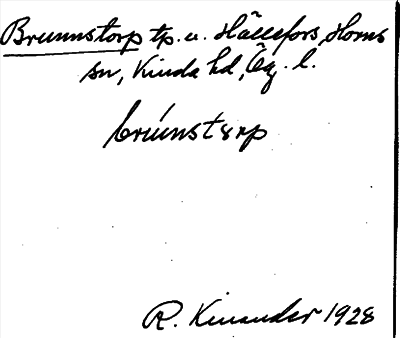 Brunnstorp tp. u. Hällefors, Horns
sn, Kinda hd, Ög. l.
brúnstərp
R. Kinander 1928